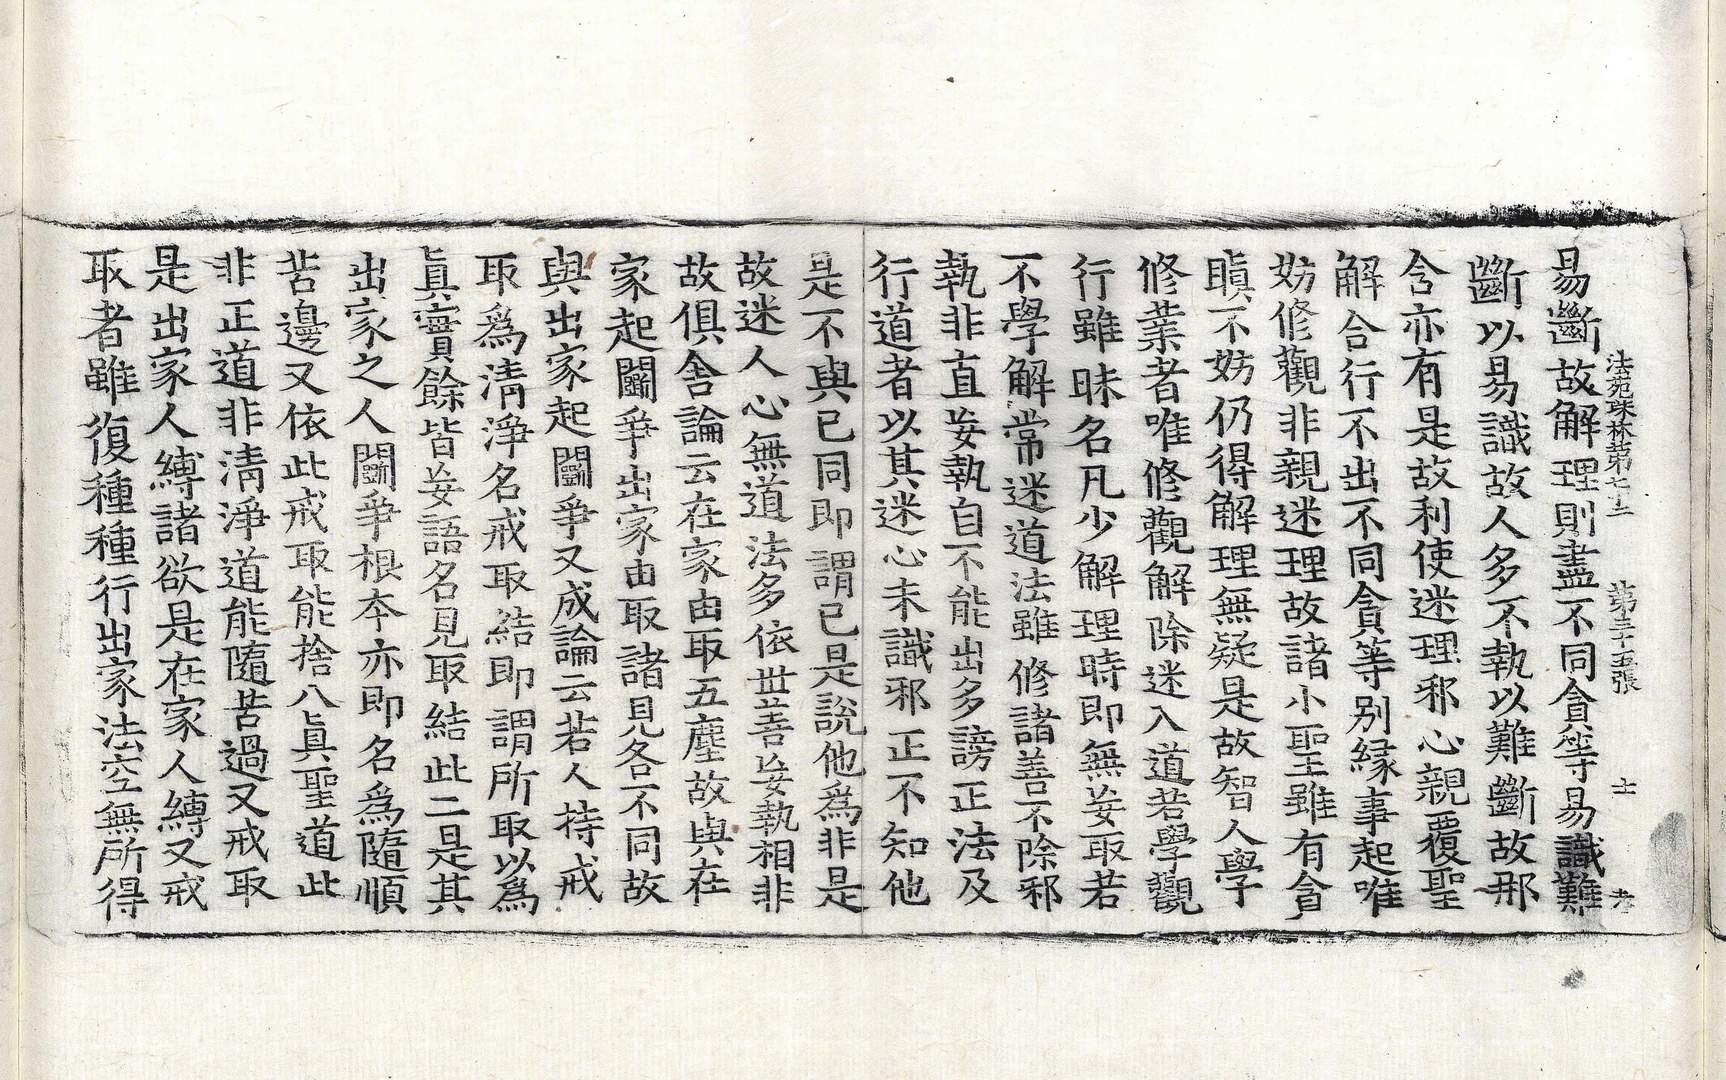 法苑珠林第七十二　第三十五張　士
易斷故解理則盡不同貪等易識難
斷以易識故人多不執以難斷故那
含亦有是故利使迷理邪心親覆聖
解合行不出不同貪等別緣事起唯
妨修觀非親迷理故諸小聖雖有貪
瞋不妨仍得解理無疑是故智人學
修業者唯修觀解除迷入道若學觀
行雖昧名凡少解理時即無妄取若
不學解常迷道法雖修諸善不除邪
執非直妄執自不能出多謗正法及
行道者以其迷心未識邪正不知他
是不與已同即謂已是說他為非是
故迷人心無道法多依世善妄執相非
故俱舍論云在家由取五塵故與在
家起鬭爭出家由取諸見各不同故
與出家起鬭爭又成論云若人持戒
取為清淨名戒取結即謂所取以為
眞實餘皆妄語名見取結此二是其
出家之人鬭爭根本亦即名為隨順
苦邊又依此戒取能捨八眞聖道此
非正道非清淨道能隨苦過又戒取
是出家人縛諸欲是在家人縛又戒
取者雖復種種行出家法空無所得